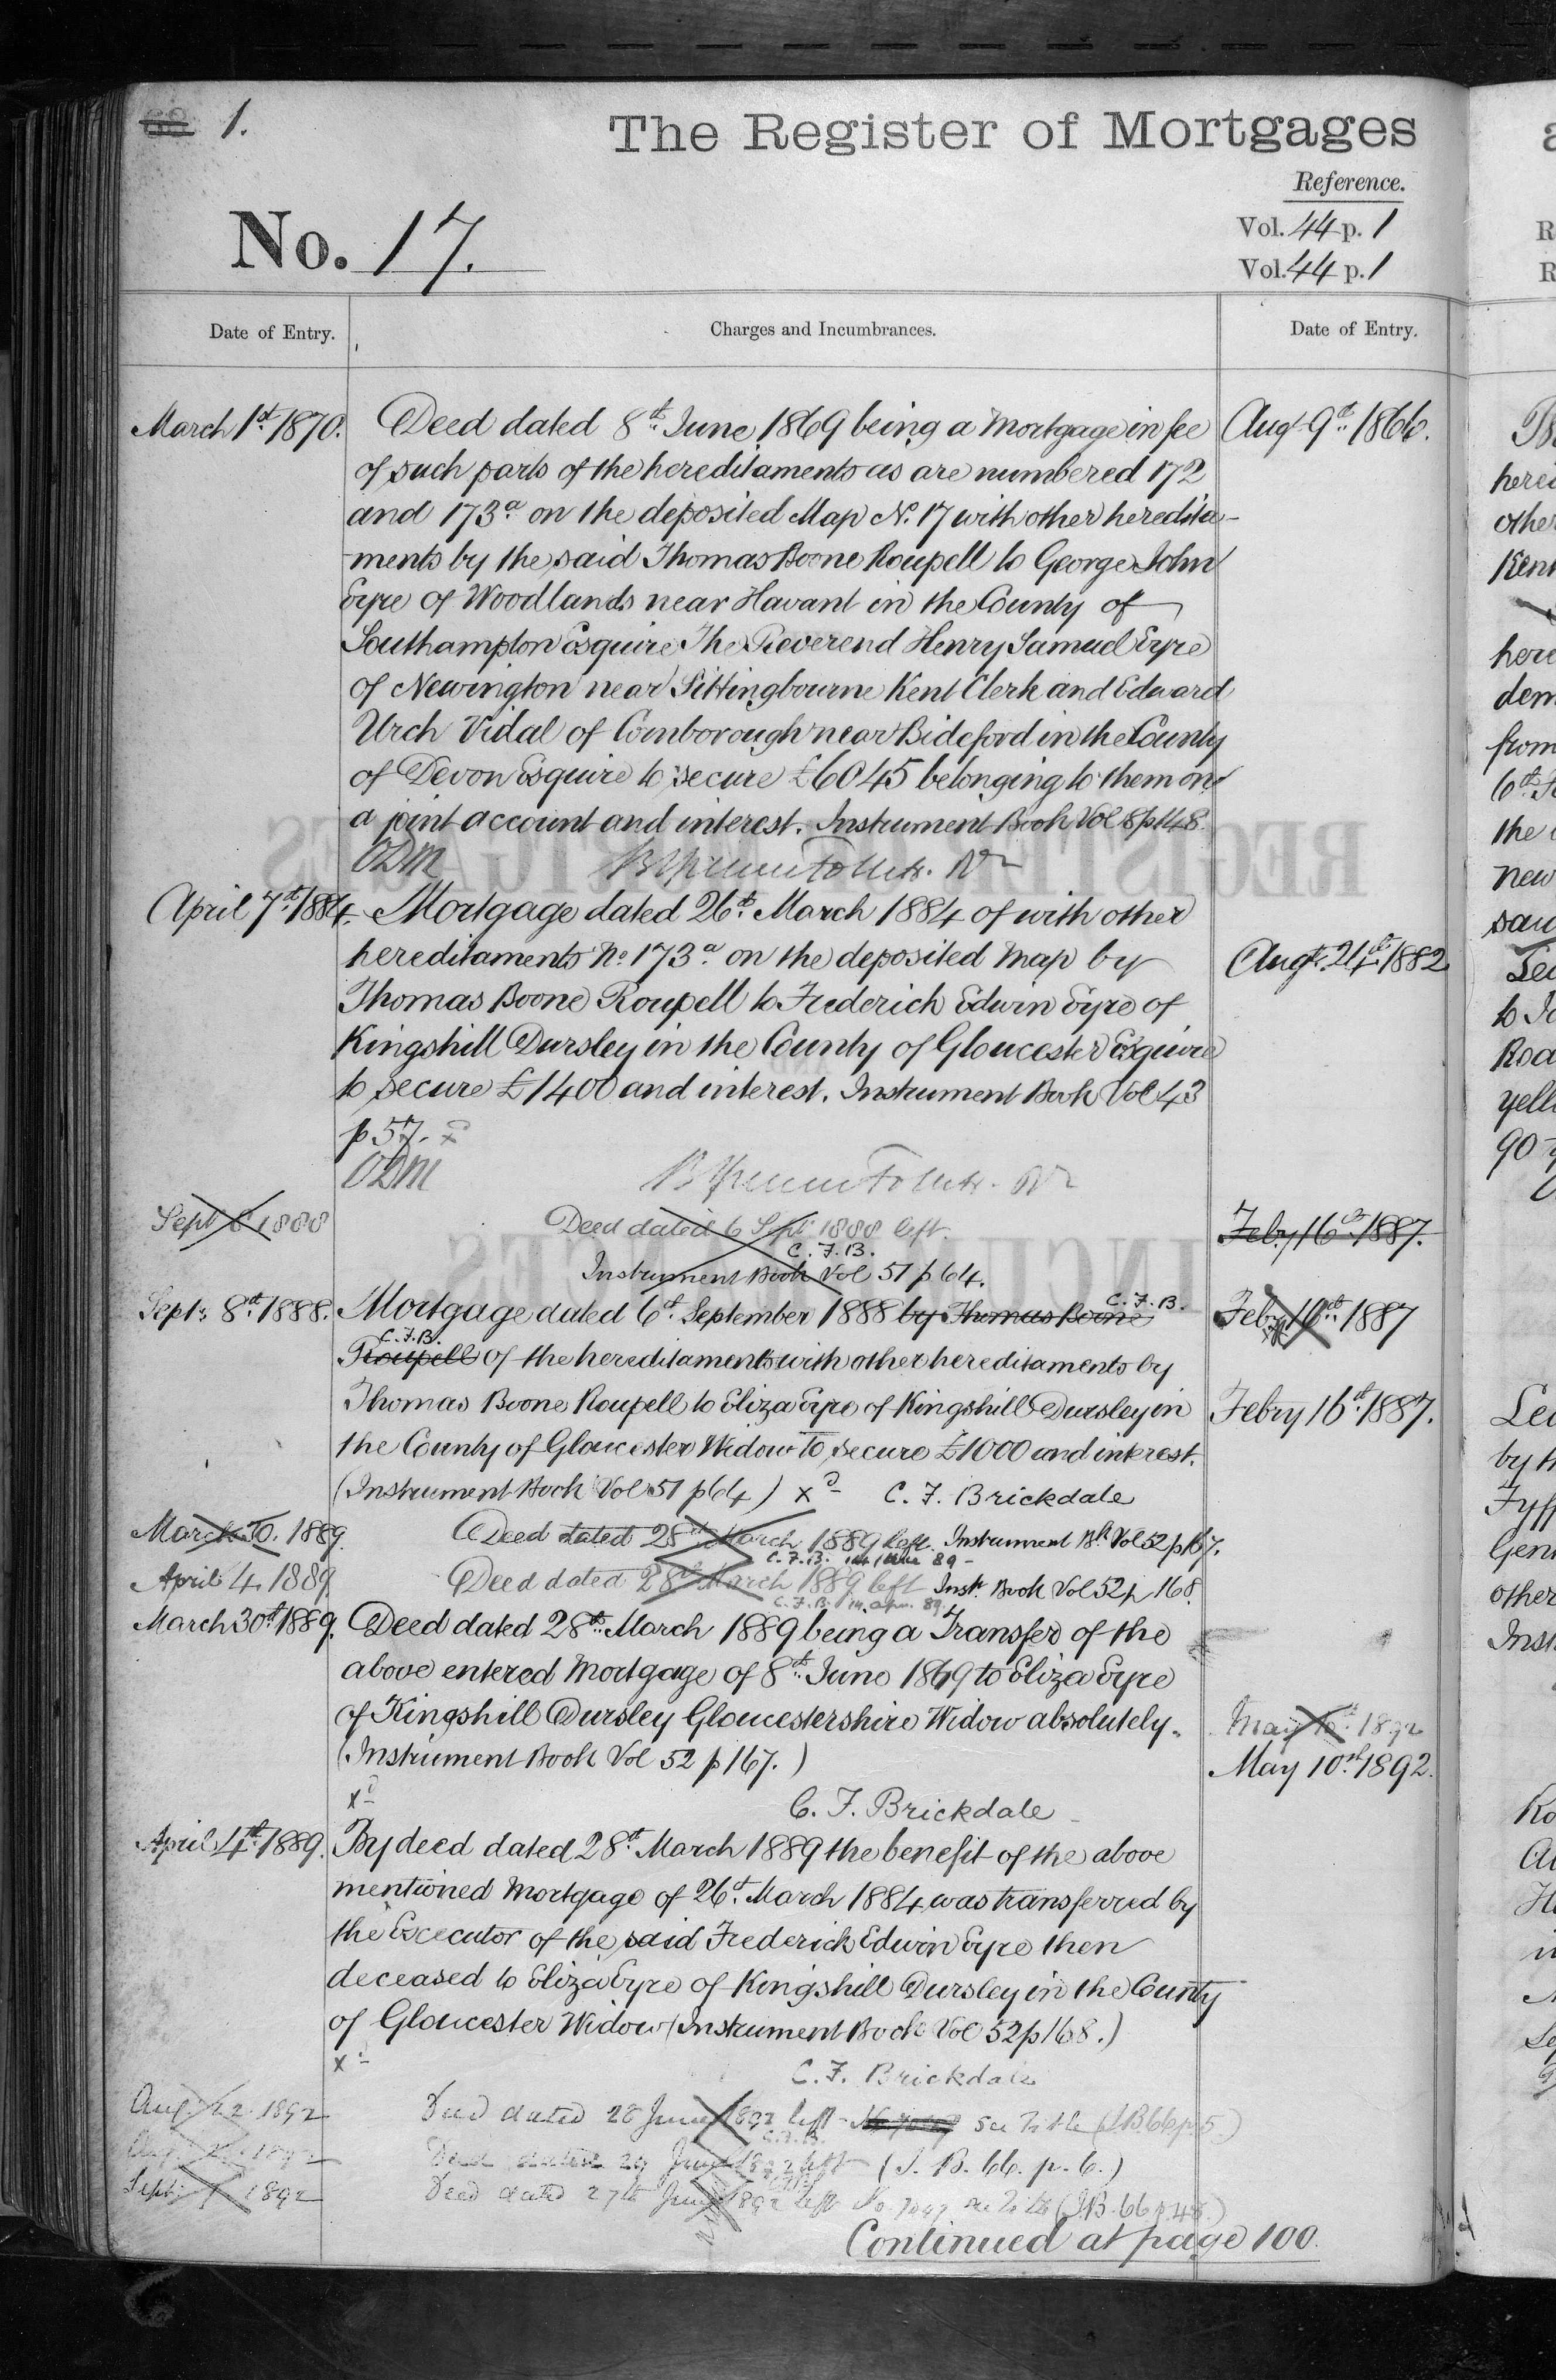 68 1.
The Register of Mortgages
Reference.
No. 17.
Vol. 44 p. 1
Vol. 44 p. 1
Date of Entry.
Charges and Incumbrances.
Date of Entry.
March 1st 1870.
Deed dated 8th June 1869 being a Mortgage in fee
of such parts of the hereditaments as are numbered 172
and 173a on the deposited Map No. 17 with other heredita-
-ments by the said Thomas Boone Roupell to George John
Eyre of Woodlands near Havant in the County of
Southampton Esquire The Reverend Henry Samuel Eyre
of Newington near Sittingbourne Kent Clerk and Edward
Urch Vidal of Cornborough near Bideford in the County
of Devon Esquire to secure £6045 belonging to them on
a joint account and interest. Instrument Book Vol 8 p 148.
April 7th 1884.
Mortgage dated 26th March 1884 of with other
hereditaments No. 173a on the deposited Map by
Thomas Boone Roupell to Frederick Edwin Eyre of
Kingshill Dursley in the County of Gloucester Esquire
to secure £1400 and interest. Instrument Book Vol 43
p 57.
Sept 8 1888
Deed dated 6 Sept 1888 left.
C. F. B.
Instrument Book Vol 51 p 64.
Sept: 8th 1888.
Mortgage dated 6th September 1888 by Thomas Boone C. F. B.
C. F. B.
Roupell of the hereditaments with other hereditaments by
Thomas Boone Roupell to Eliza Eyre of Kingshill Dursley in
the County of Gloucester Widow To secure £1000 and interest.
(Instrument Book Vol 51 p 64) x C. F. Brickdale
March 30. 1889.
Deed dated 28th March 1889 left. Instrument Bk Vol 52 p 167.
C. F. B. 89
April 4. 1889
Deed dated 28th March 1889 left Inst. Book Vol 52 p 168.
C. F. B. 14. apr. 89.
March 30th 1889.
Deed dated 28th March 1889 being a Transfer of the
above entered Mortgage of 8th June 1869 to Eliza Eyre
of Kingshill Dursley Gloucestershire Widow absolutely.
(Instrument Book Vol 52 p 167.)
x
C. F. Brickdale
April 4th 1889.
By deed dated 28th March 1889 the benefit of the above
mentioned Mortgage of 26th March 1884 was transferred by
the Executor of the said Frederick Edwin Eyre then
deceased to Eliza Eyre of Kingshill Dursley in the County
of Gloucester Widow (Instrument Book Vol 52 p 168.)
x
C. F. Brickdale
Aug. 12. 1892
Deed dated 28 June 1892 left See Title (I.B 66 p. 5.)
1892
Deed dated 29 June 1892 left (I. B. 66. p. 6.)
Sept. 1892
Deed dated 27th June 1892 left No. 7047 see Title (I.B. 66 p. 48.)
Continued at page 100.
Augt 9th 1866.
Augt. 24th 1882
Feby 16th 1887.
Feby 16th 1887
Febry 16th 1887.
May 10th 1892
May 10th 1892.